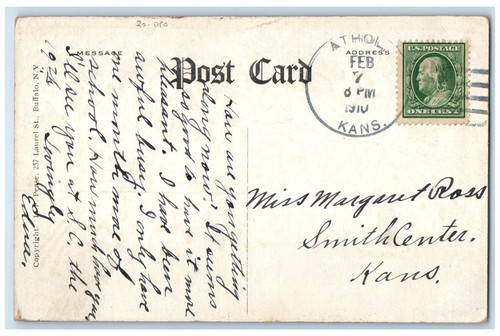 20-080
MESSAGE
Post Card
ADDRESS
ATHOL
FEB
7
8 PM
1910
KANS.
U.S. POSTAGE
ONE CENT
How are you getting
along now? It seems
so good to have it more
pleasant. I have been
awful busy. I only have
one month more of
school. How much have you.
I'll see you at S.C. the
Lovingly
Edna.
Miss Margaret Ross
Smith Center.
Kans.
Copyright 257 Laurel St., Buffalo, N.Y.